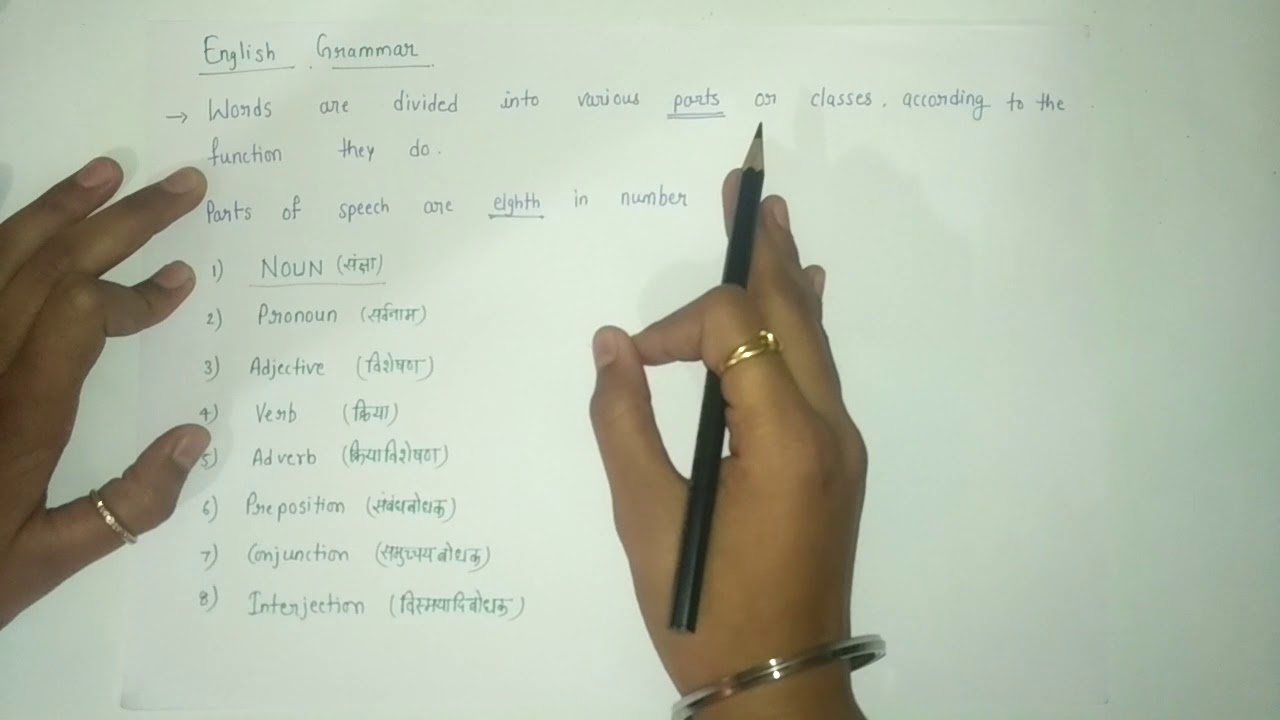 English Grammar
→ Words are divided into various parts or classes, according to the
function they do.
Parts of speech are eighth in number
1) NOUN (संज्ञा)
2) Pronoun (सर्वनाम)
3) Adjective (विशेषण)
4) Verb (क्रिया)
5) Adverb (क्रियाविशेषण)
6) Preposition (संबंधबोधक)
7) Conjunction (समुच्चयबोधक)
8) Interjection (विस्मयादिबोधक)